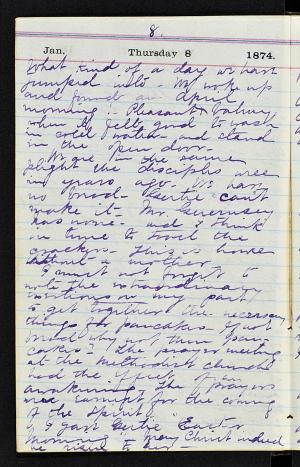 8.
Jan. Thursday 8 1874.
What kind of a day we have
jumped into - We woke up
and found an April
morning! Pleasant & balmy
when it felt good to wash
in cold water and stand
in the open door.
We are in the same
plight the disciples were
in years ago. We have
no bread - Gertie can't
make it - Mr. Guernsey
has none - and I think
in time to the
crackers. This is home
without a mother.
I must not forget to
note the extraordinary
exertions on my part
to get together the necessary
things for pancakes. If not
bread why not then pan
cakes - The prayer meeting
at the Methodist church
had the spirit of an
awakening. The prayers
were earnest for the coming
of the Spirit.
I gave Gertie Easter
Morning. May Christ indeed
be risen to her -